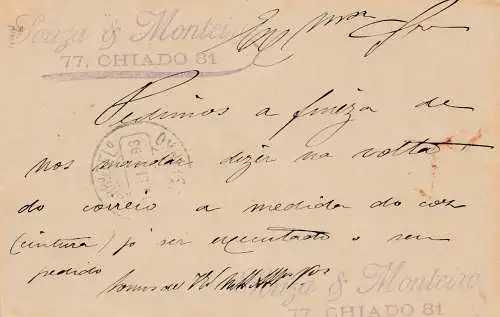 Souza & Monteiro
77, CHIADO 81
Exmo Snr
Pedimos a fineza de
nos mandar dizer na volta
do correio a medida do coz
(cintura) pª ser executado o seu
pedido
Somos de V.
Souza & Monteiro
77, CHIADO 81